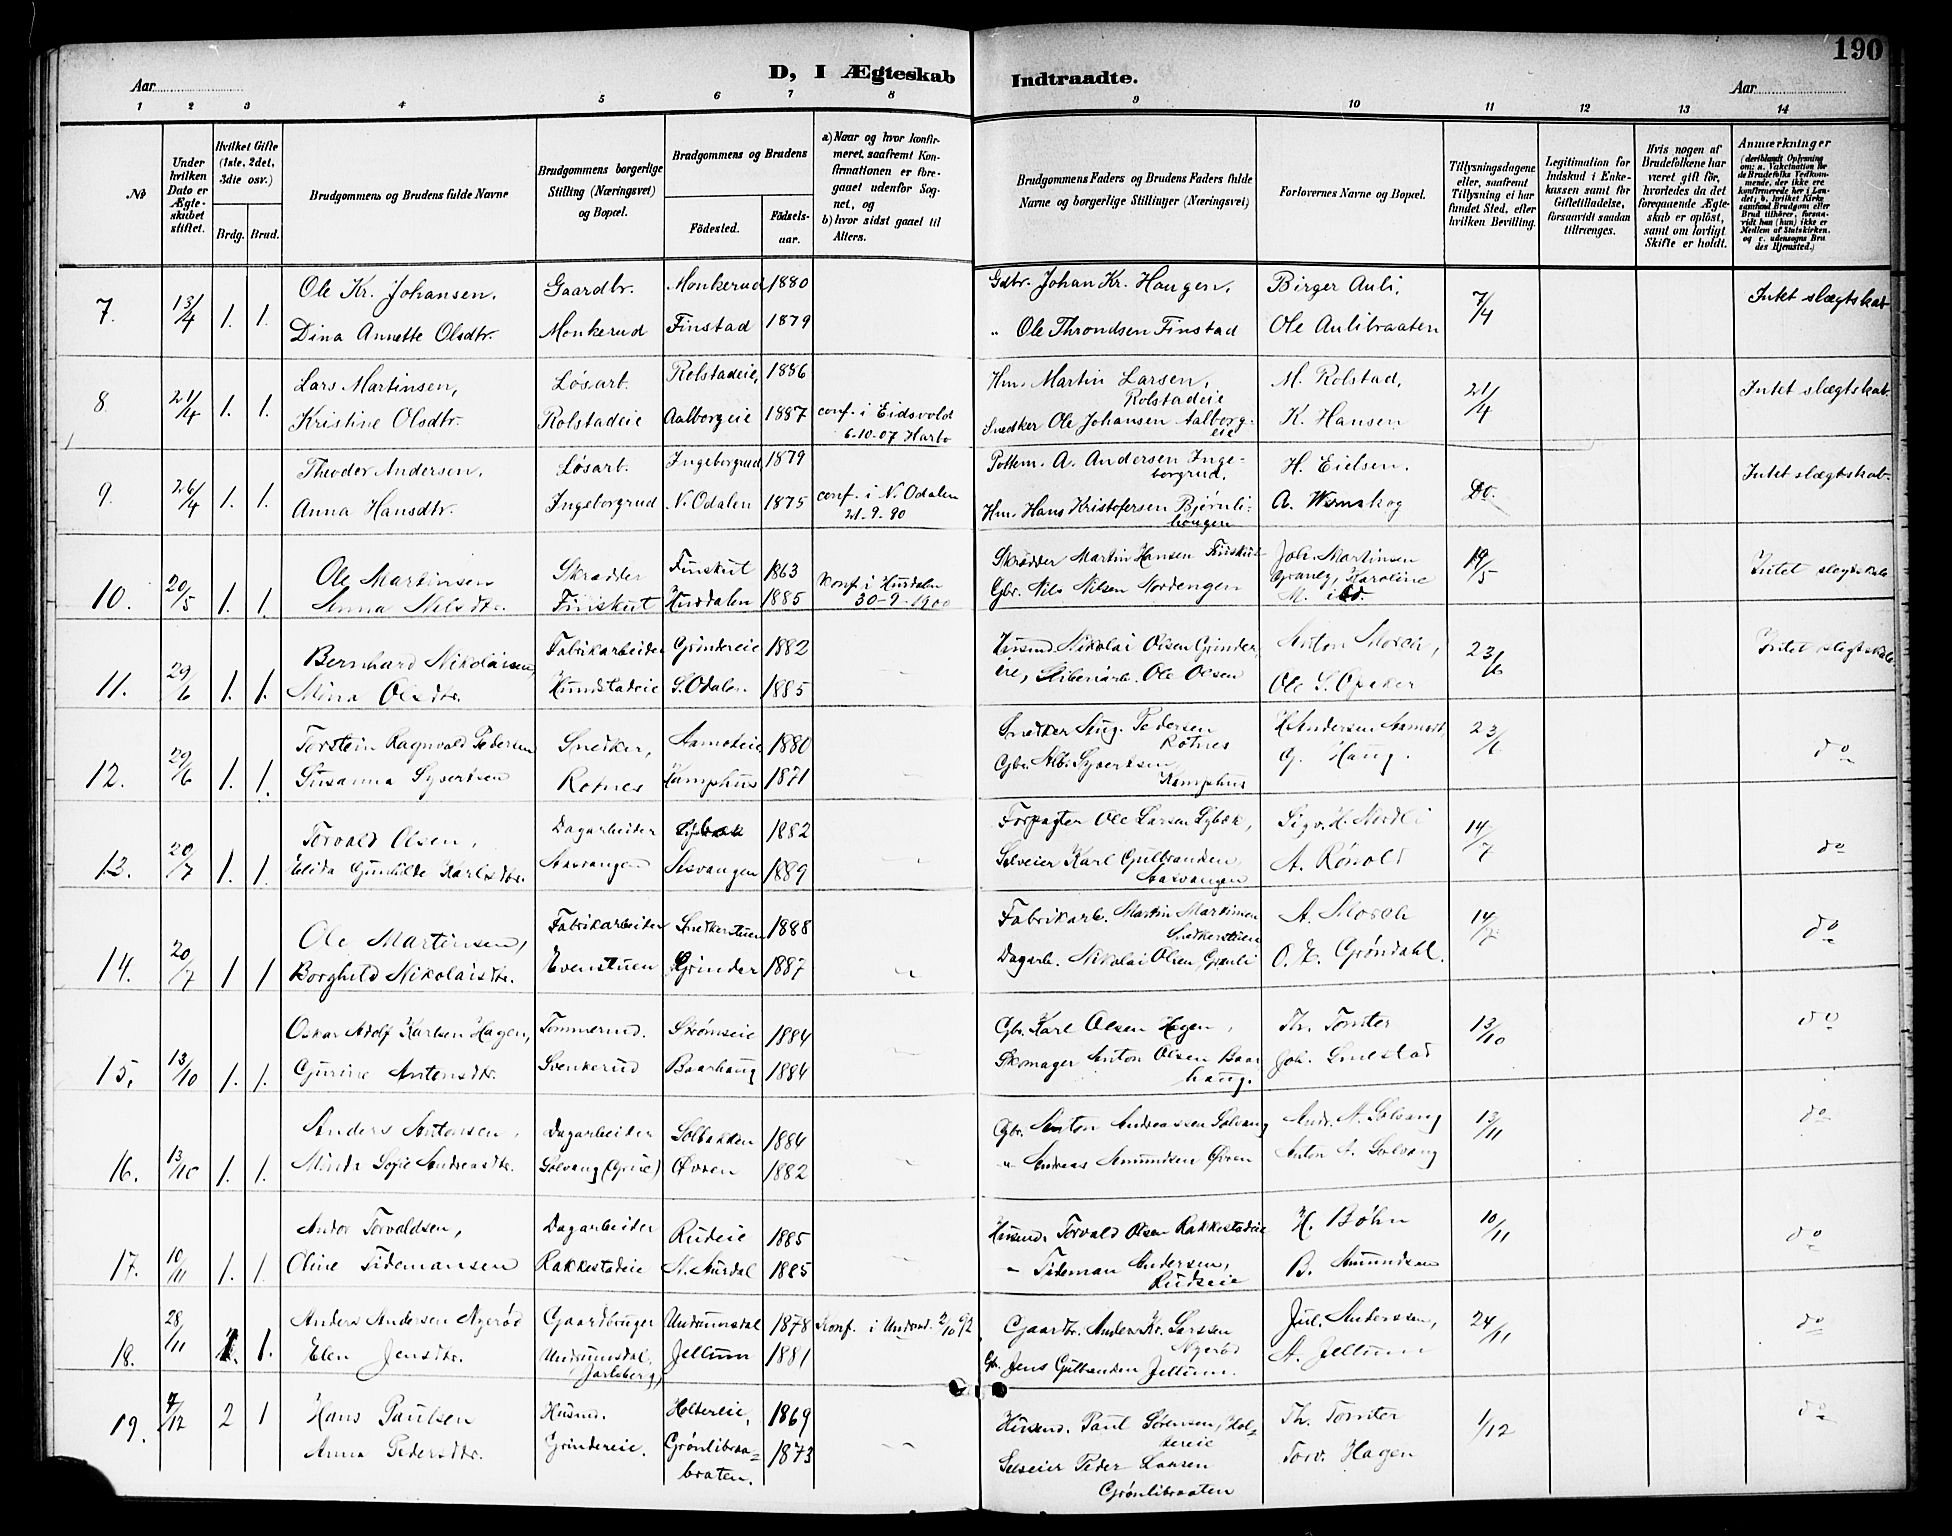 190
D, I Ægteskab Indtraadte.
Aar
Aar
1 2 3 4 5 6 7 8 9 10 11 12 13 14
No
Under hvilken Dato er Ægteskabet stiftet.
Hvilket Gifte (1ste, 2det, 3die osv.)
Brdg. Brud.
Brudgommens og Brudens fulde Navne
Brudgommens borgerlige Stilling (Næringsvei) og Bopæl.
Brudgommens og Brudens
Fødested.
Fødselsaar.
a) Naar og hvor konfirmeret, saafremt Konfirmationen er foregaaet udenfor Sognet, og
b) hvor sidst gaaet til Alters.
Brudgommens Faders og Brudens Faders fulde Navne og borgerlige Stillinger (Næringsvei)
Forlovernes Navne og Bopæl.
Tillysningsdagene eller, saafremt Tillysning ei har fundet Sted, efter hvilken Bevilling.
Legitimation for Indskud i Enkekassen samt for Giftetilladelse, forsaavidt saadan tiltrænges.
Hvis nogen af Brudefolkene har været gift før, hvorledes da det foregaaende Ægteskab er opløst, samt om lovligt Skifte er holdt.
Anmærkninger
7. 13/4 1. 1. Ole Kr. Johansen, Gaardbr. Monkerud 1880 Gdbr. Johan Kr. Haugen, Birger Auli, 7/4 Intet slægtskab
Dina Annette Olsdtr. Monkerud Finstad 1879 " Ole Throndsen Finstad Ole Aulibraaten
8. 21/4 1. 1. Lars Martinsen, Løsarb. Rolstadeie, 1886 Hm. Martin Larsen, Rolstadeie M. Rolstad, 21/4 Intet slægtskab.
Kristine Olsdtr. Rolstadeie Aalborgeie 1887 conf. i Eidsvold 6-10-07 Snedker Ole Johansen Aalborgeie K. Hansen
9. 26/4 1. 1. Theodor Andersen, Løsarb. Ingeborgrud 1879 Pottem. A. Andersen Ingeborgrud. H. Eielsen. Do. Intet slægtskab.
Anna Hansdtr. Ingeborgrud N. Odalen 1875 conf. i N. Odalen 21.9.90 Hm. Hans Kristofersen Bjørnlihaugen A. Wemskog
10. 20/5 1. 1. Ole Martinsen Skrædder Finskut 1863 Skrædder Martin Hansen Finskut Joh. Martinsen 19/5 Intet slegtskab
Anna Nilsdtr. Finskut Hurdalen 1885 Konf. i Hurdalen 30-9-1900 Gbr. Nils Nilsen Nordengen Karoline
11. 29/6 1. 1. Bernhard Nikolaisen, Fabrikarbeider Grindereie 1882 Husmd. Nikolai Olsen Grindereie, Anton 23/6 Intet slegtskab
Mina Olsdtr. Hundstadeie S. Odalen 1885 Ole Olsen Ole S.
12. 29/6 1. 1. Torstein Ragnvald Pedersen Snedker, 1880 Snedker Aug. Pedersen Rotnes H. Andersen 23/6 do
Susanna Syversen Rotnes Kamphus 1871 Gbr. Alb. Syversen, Kamphus G. Haug.
13. 20/7 1. 1. Torvald Olsen, Dagarbeider 1882 Forpagter Ole Larsen Lybæk, Sigv. H. Nordli 14/7 do
Elida Gunhilde Karlsdtr. Aasvangen Aasvangen 1889 Selveier Karl Gulbrandsen Aasvangen A. Rönold
14. 20/7 1 1 Ole Martinsen, Fabrikarbeider Snedkerstuen 1888 Fabrikarb. Martin Martinsen Snedkerstuen 14/7 do
Borghild Nikolaisdtr. Evenstuen Grinder 1887 Dagarb. Nikolai Olsen Granli O. E. Grøndahl.
15. 13/10 1. 1. Oskar Adolf Karlsen Hagen, Tømmermd. Strømseie 1884 Gbr. Karl Olsen Hagen, Th. Tomter 13/10 do
Gurine Antonsdtr. Svenkerud Baarhaug 1884 Skomager Anton Olsen Baarhaug. Joh. Smestad
16. 13/10 1. 1. Anders Antonsen, Dagarbeider Solbakken 1884 Gbr. Anton Andreassen Solvang Andr. A. Solvang 13/11 do
Minda Sofie Andreasdtr. Solvang (Grue) Øvren 1882 " Andreas Amundsen Øvren Anton A. Solvang
17. 10/11 1. 1. Andor Torvaldsen, Dagarbeider Rudeie 1885 Husmd. Torvald Olsen Rakkestadeie H. Bøhn 10/11 do
Oline Tidemansen Rakkestadeie N. Aurdal 1885 " Tideman Andersen, Rudseie B. Amundsen
18. 28/11 1. Anders Andersen Nyerød Gaardbruger Undrumsdal 1878 Konf. i Undrmd. 2/10 92 Gaardbr. Anders Kr. Larssen Nyerød Jul. Anderssen, 24/11 do
Elen Jensdtr. Undrumsdal, Jarlsberg Jellum 1881 Gbr. Jens Gulbrandsen Jellum. A. Jellum
19. 7/12 2 1 Hans Paulsen Husmd. Holtereie, 1869 Husmd. Paul Sørensen, Holtereie Th. Tomter 1/12 do
Anna Pedersdtr. Grindereie. Grønlibraabraaten. 1873 Selveier Peder Larsen Grønlibraaten Torv. Hagen